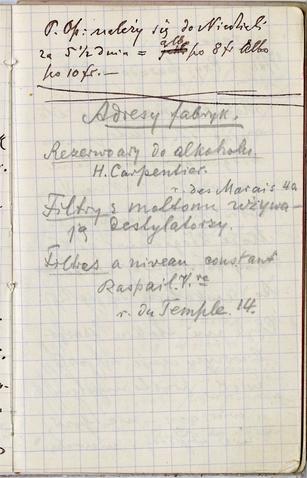 P. Op: należy się do Niedzieli
za 5 1/2 dnia = albo po 8 fr albo
po 10 fr. —
Adresy fabryk.
Rezerwoary do alkoholu
H. Carpentier.
r. des Marais 4a
Filtry s moltonu używa-
ją destylatorzy.
Filtres a niveau constant
Raspail. Vve
r. du Temple. 14.